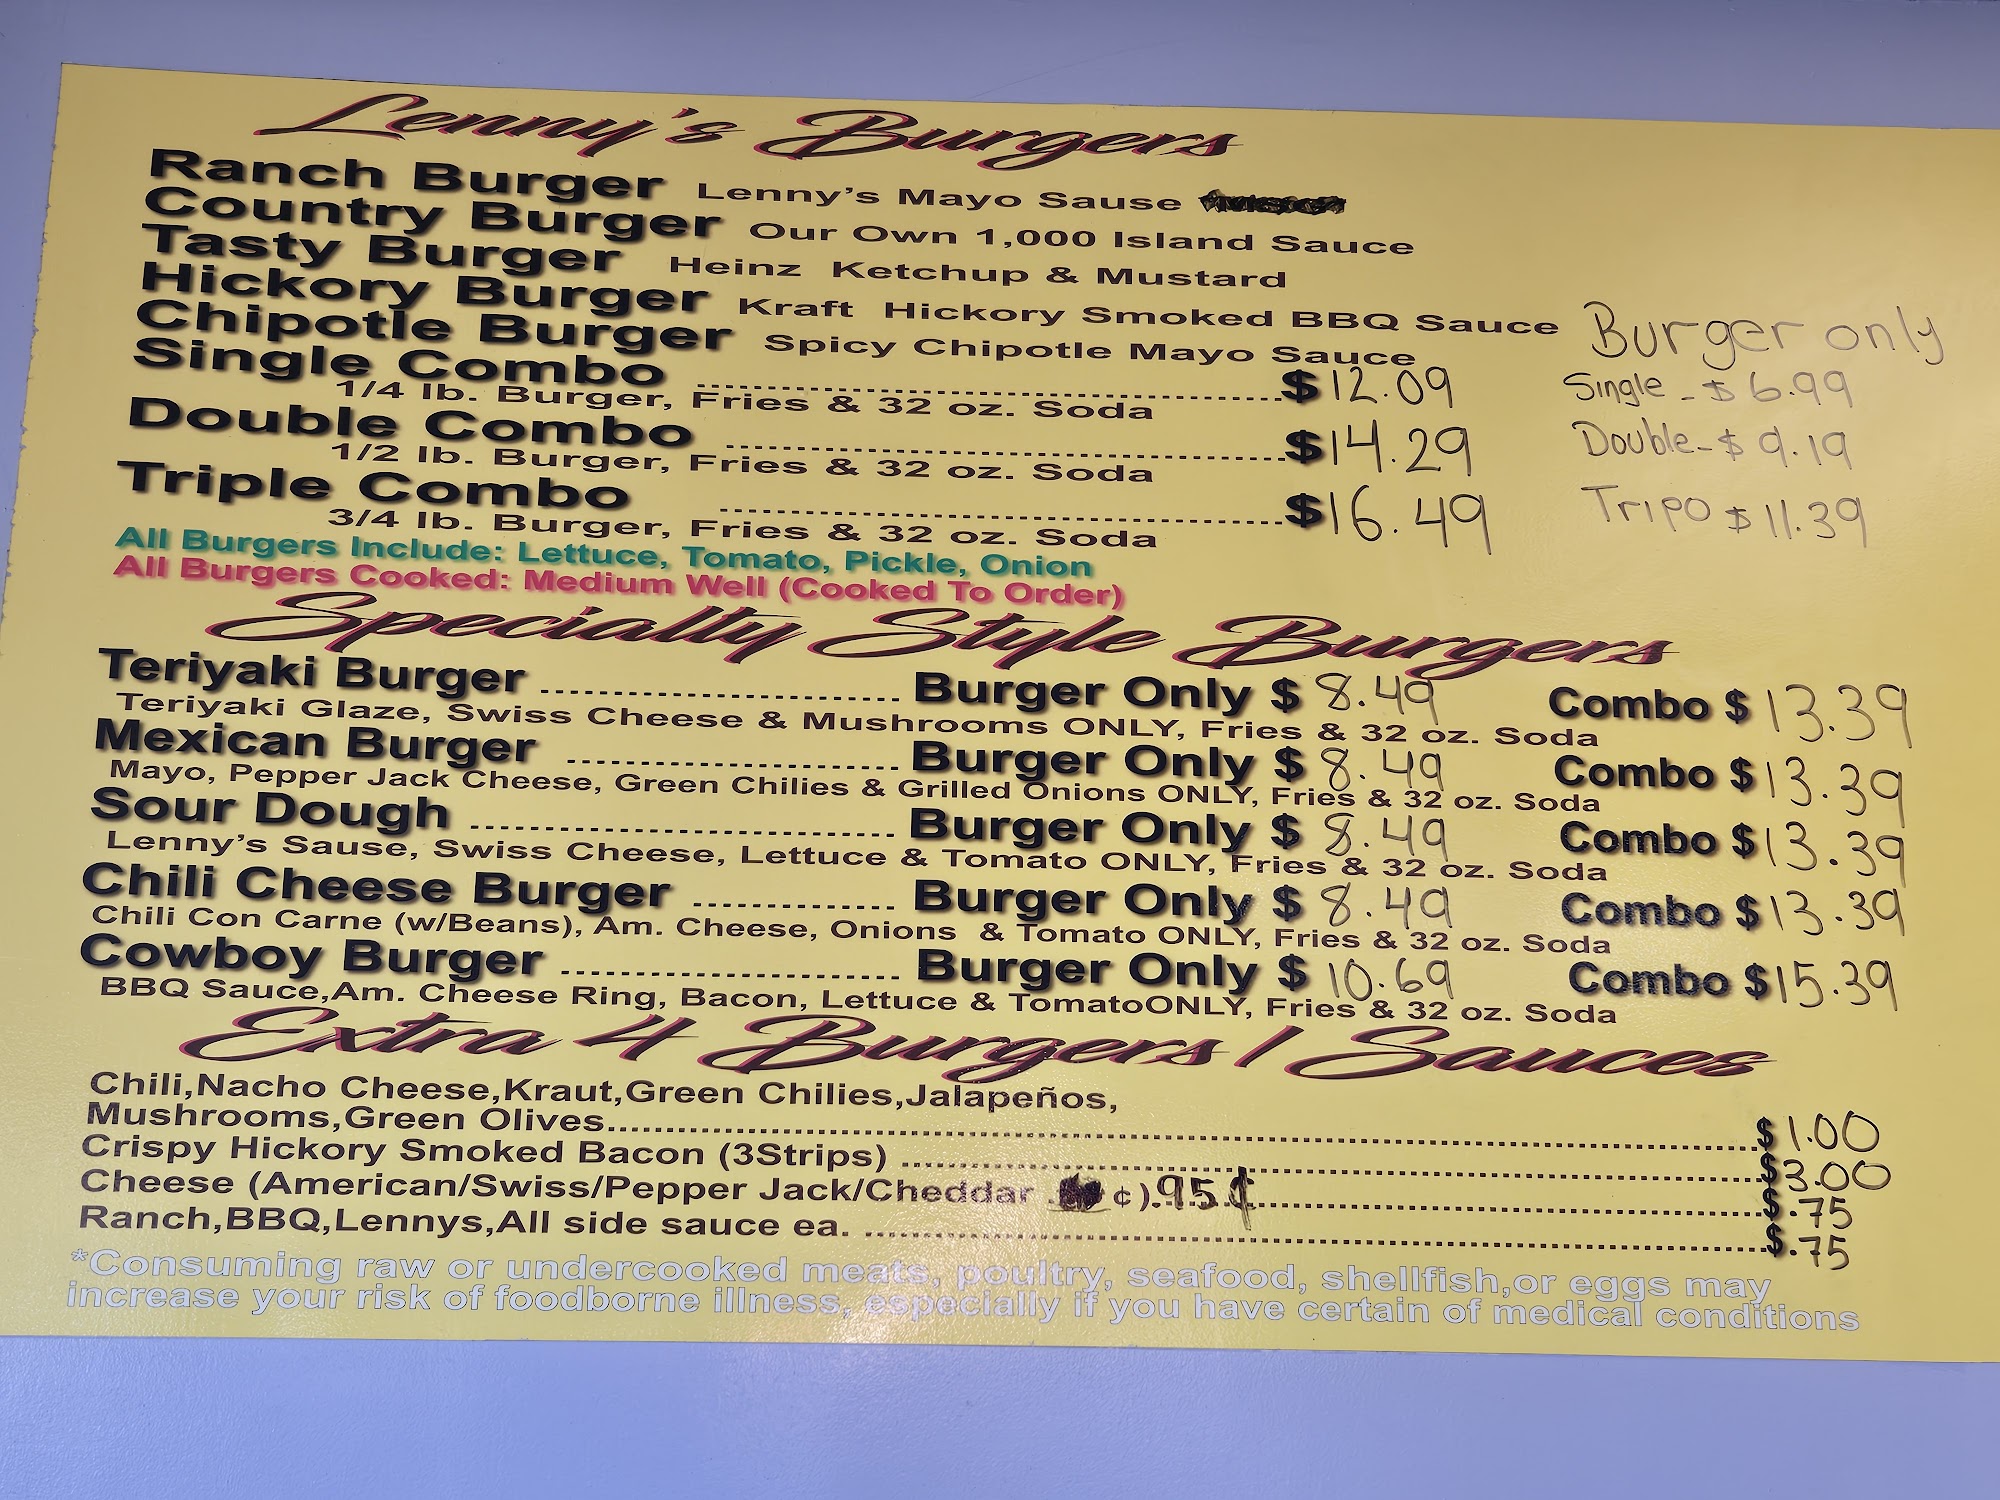 Lenny's Burgers
Ranch Burger Lenny's Mayo Sause
Country Burger Our Own 1,000 Island Sauce
Tasty Burger Heinz Ketchup & Mustard
Hickory Burger Kraft Hickory Smoked BBQ Sauce
Chipotle Burger Spicy Chipotle Mayo Sauce
Burger only
Single Combo ........ $12.09 Single - $6.99
1/4 lb. Burger, Fries & 32 oz. Soda
Double Combo ........ $14.29 Double - $9.19
1/2 lb. Burger, Fries & 32 oz. Soda
Triple Combo ........ $16.49 Tripo $11.39
3/4 lb. Burger, Fries & 32 oz. Soda
All Burgers Include: Lettuce, Tomato, Pickle, Onion
All Burgers Cooked: Medium Well (Cooked To Order)
Specialty Style Burgers
Teriyaki Burger ........ Burger Only $8.49 Combo $13.39
Teriyaki Glaze, Swiss Cheese & Mushrooms ONLY, Fries & 32 oz. Soda
Mexican Burger ........ Burger Only $8.49 Combo $13.39
Mayo, Pepper Jack Cheese, Green Chilies & Grilled Onions ONLY, Fries & 32 oz. Soda
Sour Dough ........ Burger Only $8.49 Combo $13.39
Lenny's Sause, Swiss Cheese, Lettuce & Tomato ONLY, Fries & 32 oz. Soda
Chili Cheese Burger ........ Burger Only $8.49 Combo $13.39
Chili Con Carne (w/Beans), Am. Cheese, Onions & Tomato ONLY, Fries & 32 oz. Soda
Cowboy Burger ........ Burger Only $10.69 Combo $15.39
BBQ Sauce,Am. Cheese Ring, Bacon, Lettuce & TomatoONLY, Fries & 32 oz. Soda
Extra 4 Burgers / Sauces
Chili,Nacho Cheese,Kraut,Green Chilies,Jalapeños,
Mushrooms,Green Olives........ $1.00
Crispy Hickory Smoked Bacon (3Strips) ........ $3.00
Cheese (American/Swiss/Pepper Jack/Cheddar ¢).95¢........ $.75
Ranch,BBQ,Lennys,All side sauce ea. ........ $.75
*Consuming raw or undercooked meats, poultry, seafood, shellfish,or eggs may
increase your risk of foodborne illness, especially if you have certain of medical conditions